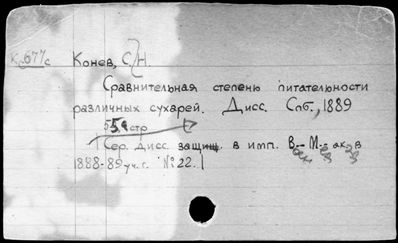 К 677с Конев, С. Н.
Сравнительная степень питательности
различных сухарей. Дисс. Спб., 1889
55, стр
(Сер. дисс. защищ. в имп. В.-М. ак. в
1888-89 уч. г. № 22.)